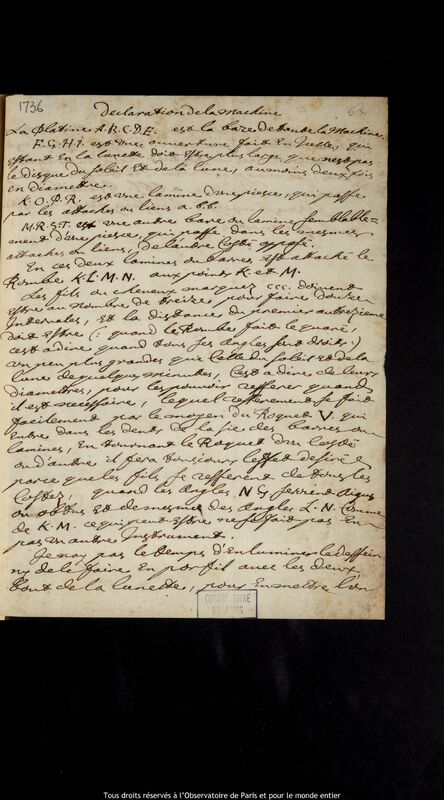 1736
63
Declaration de la machine
La Platine A.B.C.D.E. est la baze de toute la Machine.
F.G.H.I. est une ouverture fait en icelle, qui
estant en la lunette doit estre plus large que n'est pas
le disque du soleil et de la lune, au moins deux fois
en diametre.
K.O.P.R. est une lamine d'une piesce, qui passe
par les attaches ou liens a. bb.
M.R.S.T. est une autre bare ou lamine semblable=
ment d'une piesce, qui passe dans les mesmes
attaches ou liens, de l'autre costé opposé.
En ces deux lamines ou barres est attaché le
Rombe K.L.M.N. aux points K. et M.
Les fils ou cheveux marquez ccc. doivent
estre au nombre de treize pour faire douze
Intervales, et la distance du premier au treisieme
doit estre (: quand le Rombe fait le quaré,
c'est a dire quand tous ses angles sont droits :)
un peu plus grandes que celle du soleil et de la
lune de quelques minutes, c'est a dire de leurs
diametres, pour les pouvoir resserer quand
il est necessaire, lequel resserement se fait
facilement par le moyen du Roquet V. qui
Entre dans les dents de la sie des barres ou
lamines, En tournant le Roquet d'un costé
ou d'autre il fera tousiours l'effet desiré
parce que les fils se resserent de tous les
Costez, quand les Angles N
ou obtus et de mesme des Angles L. N. comme
de K. M. ce qui peut estre ne se fait pas En
pas un autre Instrument.
Je n'ay pas le temps d'Enluminer le dessein
ny de le faire En porfil avec les deux
bout de la lunettes, pour En mettre l'un
OBSERVATOIRE
DE PARIS
Tous droits réservés à l'Observatoire de Paris et pour le monde entier